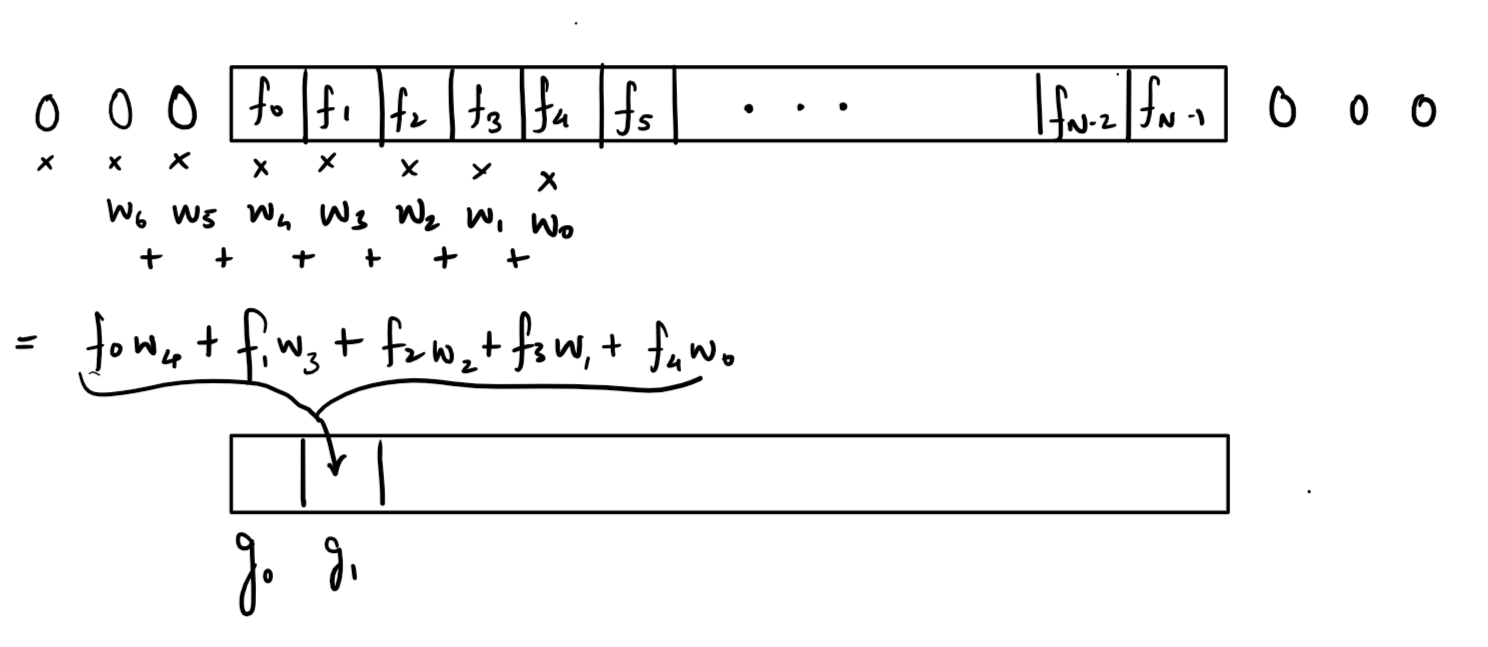 0 0 0 f₀ f₁ f₂ f₃ f₄ f₅ . . . f_N-2 f_N-1 0 0 0
x x x x x x x x
w₆ w₅ w₄ w₃ w₂ w₁ w₀
+ + + + + +
= f₀w₄ + f₁w₃ + f₂w₂ + f₃w₁ + f₄w₀
g₀ g₁